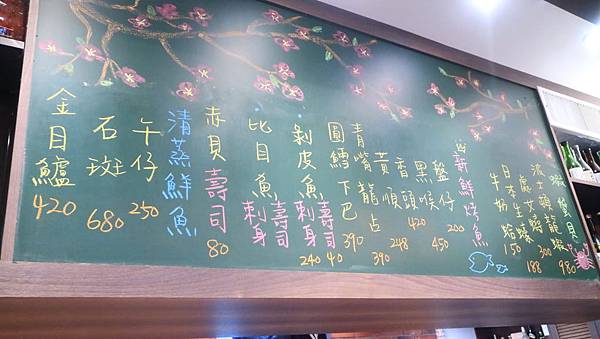 金目鱸 420
石斑 680
午仔 250
清蒸鮮魚
赤貝壽司 80
比目魚 刺身 壽司
剝皮魚 刺身 壽司 240 40
圓鱈下巴 390
青嘴龍占 390
黃順 248
香頭 420
黑喉 450
盤仔 200
新鮮烤魚
牛奶蛤 150
日本生蠔
處女蟳 188
波士頓龍蝦 980